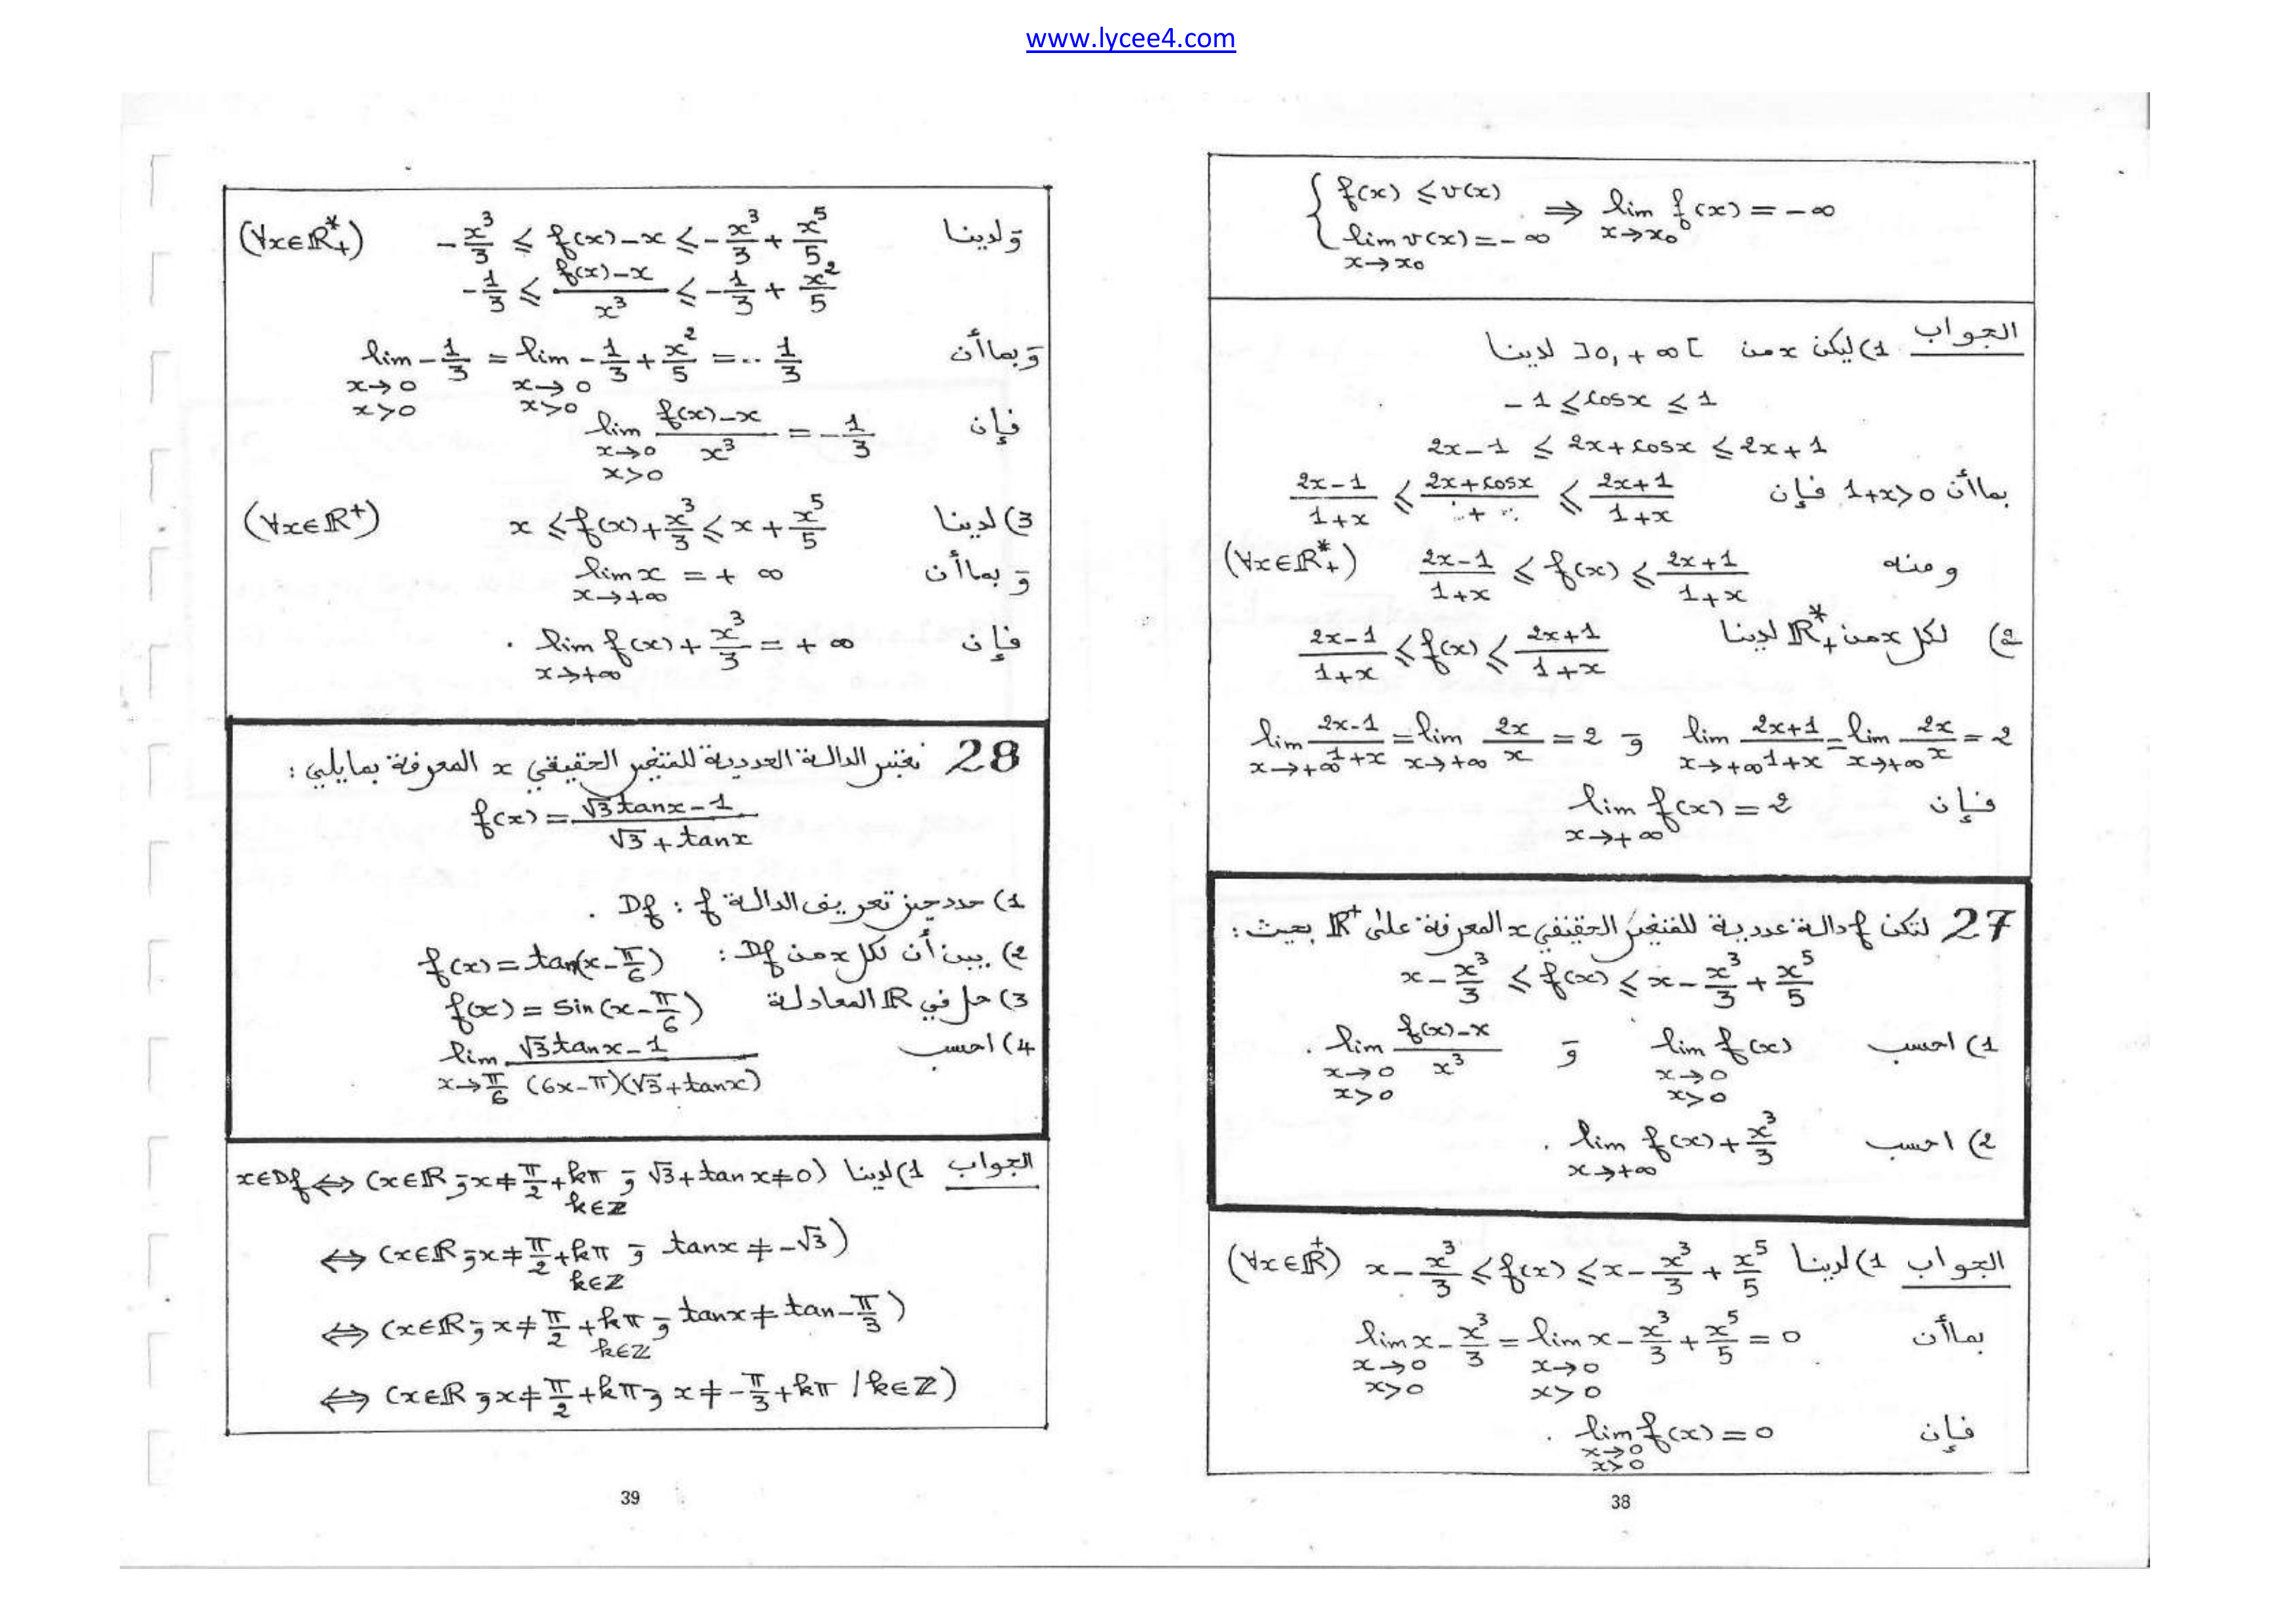 www.lycee4.com
{ f(x) ≤ v(x)
lim v(x) = -∞ ⇒ lim f(x) = -∞
x→x₀ x→x₀
الجواب 1) ليكن x من ]0, +∞[ لدينا
-1 ≤ cosx ≤ 1
2x-1 ≤ 2x+cosx ≤ 2x+1
بما أن 1+x>0 فإن (2x-1)/(1+x) ≤ (2x+cosx)/ + ≤ (2x+1)/(1+x)
ومنه (2x-1)/(1+x) ≤ f(x) ≤ (2x+1)/(1+x) (∀x∈ℝ*₊)
2) لكل x من ℝ*₊ لدينا (2x-1)/(1+x) ≤ f(x) ≤ (2x+1)/(1+x)
lim (2x-1)/(1+x) = lim 2x/x = 2 و lim (2x+1)/(1+x) = lim 2x/x = 2
x→+∞ x→+∞ x→+∞ x→+∞
فإن lim f(x) = 2
x→+∞
27 لتكن f دالة عددية للمتغير الحقيقي x المعرفة على ℝ⁺ بحيث :
x - x³/3 ≤ f(x) ≤ x - x³/3 + x⁵/5
1) احسب lim f(x) و lim (f(x)-x)/x³ .
x→0 x→0
x>0 x>0
2) احسب lim f(x) + x³/3 .
x→+∞
الجواب 1) لدينا x - x³/3 ≤ f(x) ≤ x - x³/3 + x⁵/5 (∀x∈ℝ⁺)
بما أن lim x - x³/3 = lim x - x³/3 + x⁵/5 = 0
x→0 x→0
x>0 x>0
فإن lim f(x) = 0 .
x→0
x>0
38
و لدينا -x³/3 ≤ f(x)-x ≤ -x³/3 + x⁵/5 (∀x∈ℝ*₊)
-1/3 ≤ (f(x)-x)/x³ ≤ -1/3 + x²/5
و بما أن lim -1/3 = lim -1/3 + x²/5 = -1/3
x→0 x→0
x>0 x>0
فإن lim (f(x)-x)/x³ = -1/3
x→0
x>0
3) لدينا x ≤ f(x) + x³/3 ≤ x + x⁵/5 (∀x∈ℝ⁺)
و بما أن lim x = +∞
x→+∞
فإن lim f(x) + x³/3 = +∞ .
x→+∞
28 نعتبر الدالة العددية للمتغير الحقيقي x المعرفة بمايلي :
f(x) = (√3 tanx - 1)/(√3 + tanx)
1) حدد حيز تعريف الدالة f : Df .
2) بين أن لكل x من Df : f(x) = tan(x - π/6)
3) حل في ℝ المعادلة f(x) = sin(x - π/6)
4) احسب lim (√3 tanx - 1)/((6x-π)(√3+tanx))
x→π/6
الجواب 1) لدينا x∈Df ⇔ (x∈ℝ و x≠π/2+kπ و √3+tanx≠0)
k∈ℤ
⇔ (x∈ℝ و x≠π/2+kπ و tanx≠-√3)
k∈ℤ
⇔ (x∈ℝ و x≠π/2+kπ و tanx≠tan-π/3)
k∈ℤ
⇔ (x∈ℝ و x≠π/2+kπ و x≠-π/3+kπ /k∈ℤ)
39